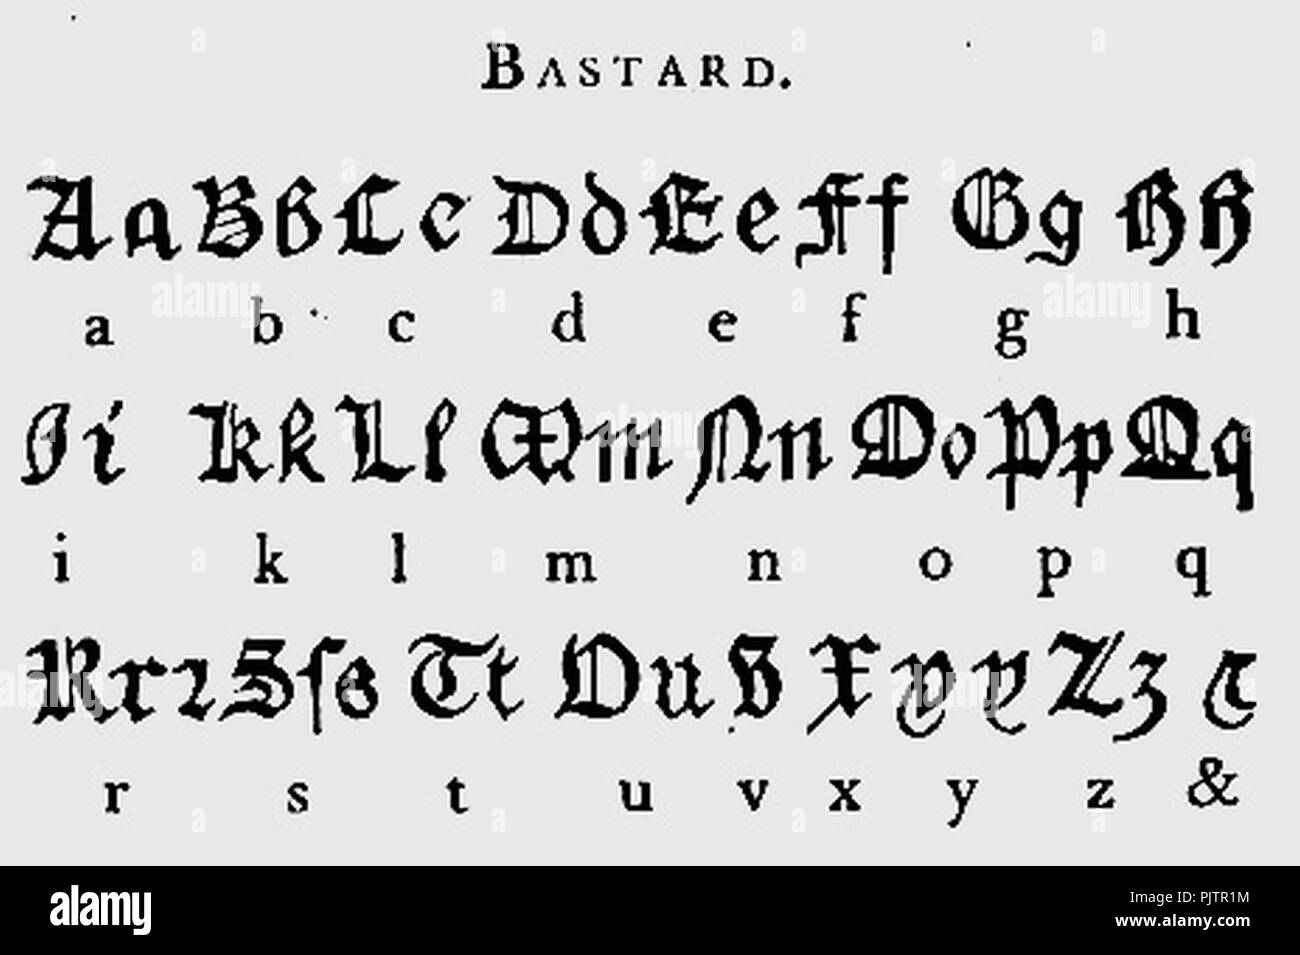 BASTARD.
Aa Bb Cc Dd Ee Ff Gg Hh
a b c d e f g h
Ii Kk Ll Mm Nn Oo Pp Qq
i k l m n o p q
Rrꝛ Sſs Tt Uu V X yy Zz &
r s t u v x y z &
alamy
PJTR1M
www.alamy.com